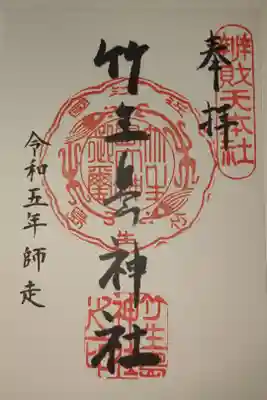 奉拝
辨財天本社
竹生島神社
竹生島
神社
之印
令和五年師走